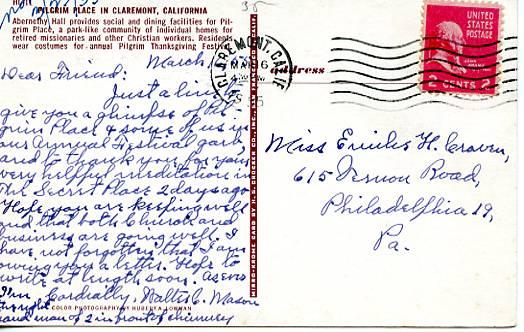 PILGRIM PLACE IN CLAREMONT, CALIFORNIA
Abernethy Hall provides social and dining facilities for Pil-
grim Place, a park-like community of individual homes for
retired missionaries and other Christian workers. Residents
wear costumes for annual Pilgrim Thanksgiving Festival.
March
Dear Friend:
Just a line to
give you a glimpse of Pil-
grim Place & some of us in
our Annual Festival garb,
and to thank you for your
very helpful meditation in
The Secret Place 2 days ago
Hope you are keeping well
and that both Church and
business are going well. I
have not forgotten that I am
owing you a letter. Hope to
write at length soon. As ever
I'm Cordially, Walter C. Mason
COLOR PHOTOGRAPHY BY
hand man of 2 in front of chimney
MIRRO-KROME CARD BY H. S. CROCKER CO., INC., SAN FRANCISCO, CALIF.
CLAREMONT, CALIF.
address
UNITED
STATES
POSTAGE
JOHN ADAMS
2 CENTS 2
Miss Emilie H. Craven,
615 Vernon Road,
Philadelphia 19,
Pa.